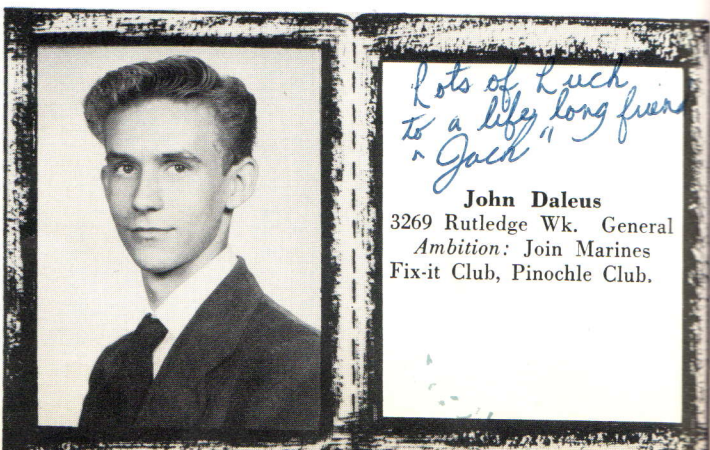 Lots of Luck
to a life long friend
"Jack"
John Daleus
3269 Rutledge Wk. General
Ambition: Join Marines
Fix-it Club, Pinochle Club.